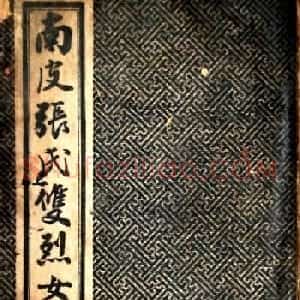 南皮張氏雙烈女